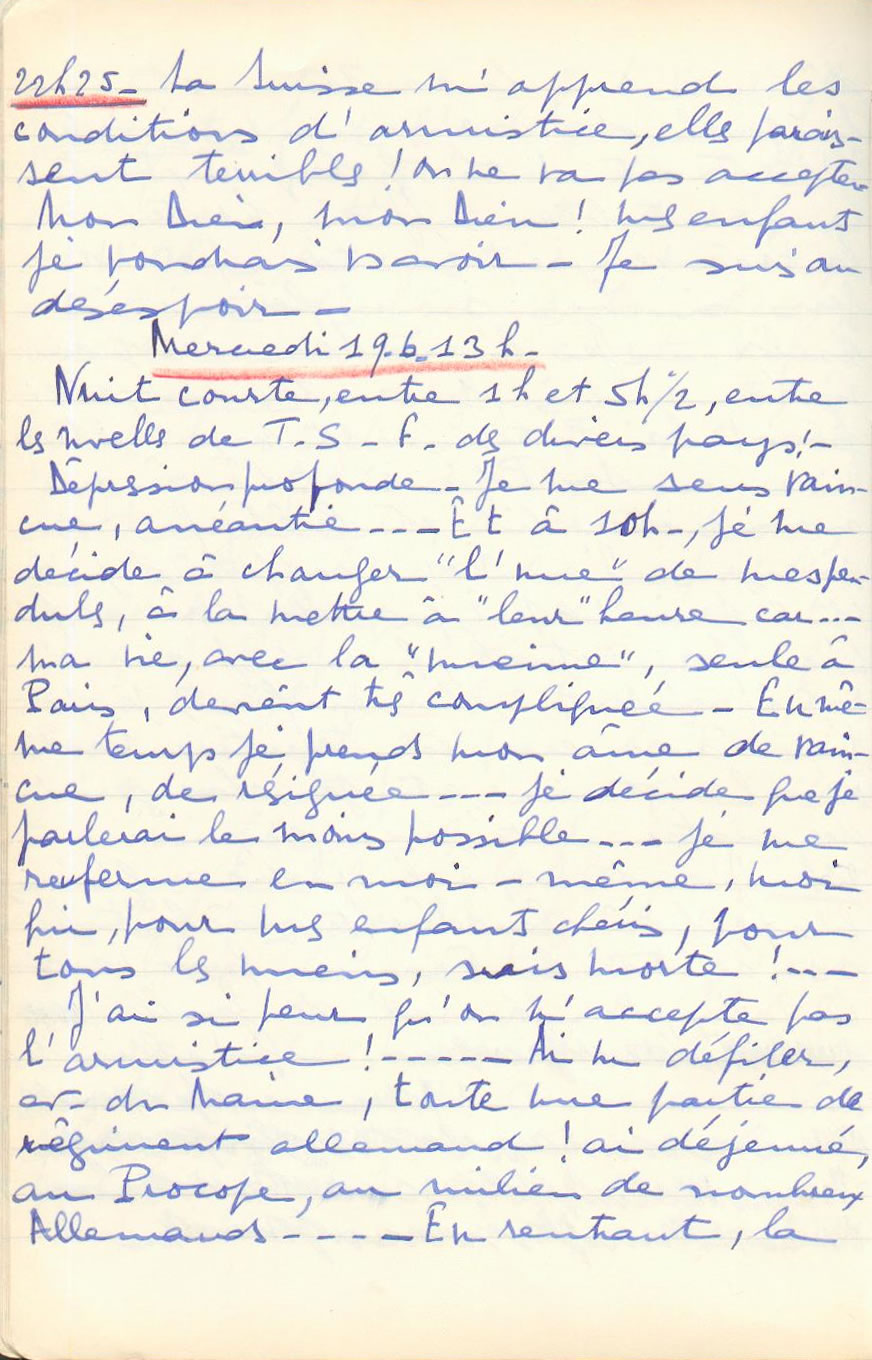 22h25 - La Suisse m'apprend les
conditions d'armistice, elles parais-
sent terribles ! On ne va pas accepter
Mon Dieu, mon Dieu ! Mes enfants
je voudrais savoir - Je suis au
désespoir -
Mercredi 19-6-13h-
Nuit courte, entre 1h et 5h 1/2, entre
les nvelles de T.S-F. des divers pays !-
Dépression profonde - Je me sens vain-
cue, anéantie --- Et à 10h-, je me
décide à changer "l'heure" de mes pen-
dules, à la mettre à "leur" heure car ---
ma vie, avec la "mienne", seule à
Paris, devient très compliquée - En mê-
me temps je prends mon âme de vain-
cue, de résignée --- je décide que je
parlerai le moins possible --- je me
referme en moi-même, moi
qui, pour mes enfants chéris, pour
tous les miens, suis morte !---
J'ai si peur qu'on n'accepte pas
l'armistice !----- Ai vu défiler,
av- du Maine, toute une partie de
régiment allemand ! ai déjeuné,
au Procope, au milieu de nombreux
Allemands ---- En rentrant, la